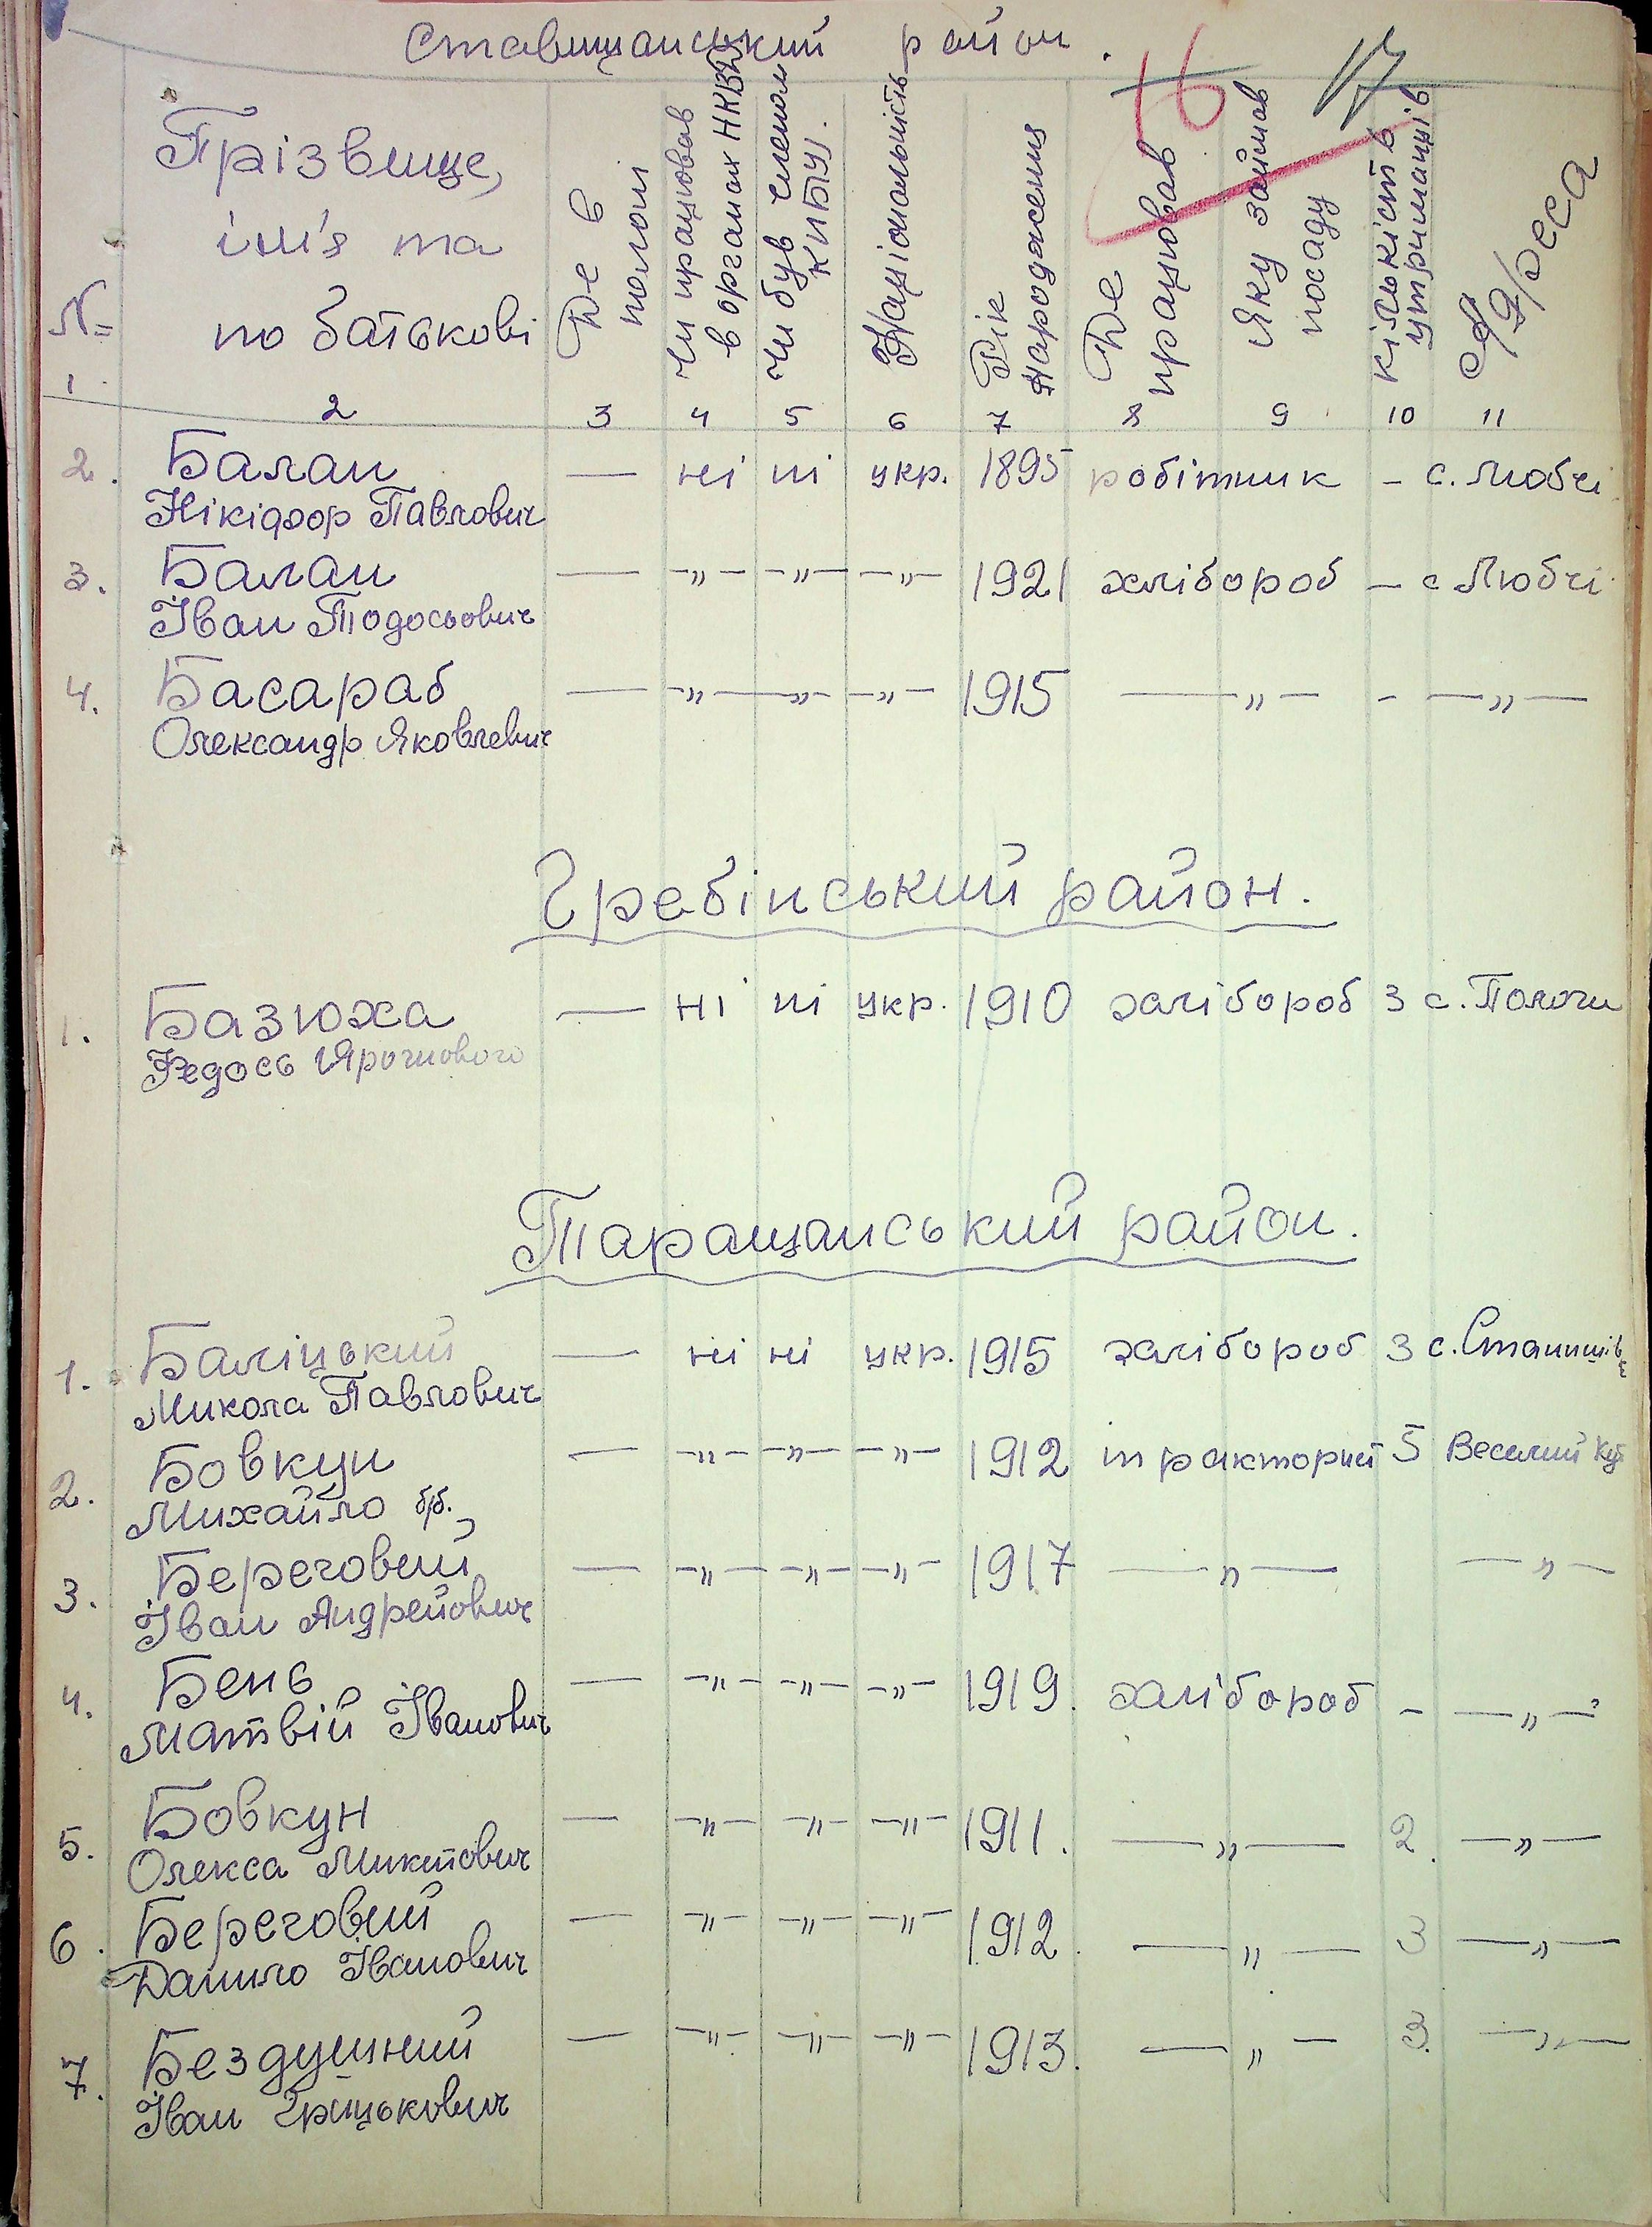 Ставищанський район.
16 17
№ Прізвище, ім'я та по батькові Де в полоні Чи працював в органах НКВД Чи був членом КПБУ. Національність Рік народження Де працював Яку займав посаду Кількість утриманців Адреса
1 2 3 4 5 6 7 8 9 10 11
2. Балан — ні ні укр. 1895 робітник – с. Любчі
Нікіфор Павлович
3. Балан — –„– –„– –„– 1921 хлібороб – с Любчі
Іван Тодосьович
4. Басараб — –„– –„– –„– 1915 –„– - –„–
Олександр Яковлевич
Гребінський район.
1. Базюха — ні ні укр. 1910 хлібороб 3 с. Пологи
Федось
Таращанський район.
1. Баліцький — ні ні укр. 1915 хлібороб 3 с. Станишівк
Микола Павлович
2. Бовкун — –„– –„– –„– 1912 тракторист 5 Веселий Кут
Михайло б/б.
3. Береговий — –„– –„– –„– 1917 –„– –„–
Іван Андрейович
4. Бень — –„– –„– –„– 1919. хлібороб – –„–
Матвій Іванович
5. Бовкун — –„– –„– –„– 1911. –„– 2. –„–
Олекса Микитович
6. Береговий — –„– –„– –„– 1912. –„– 3 –„–
Данило Іванович
7. Бездушний — –„– –„– –„– 1913. –„– 3. –„–
Іван Грицькович